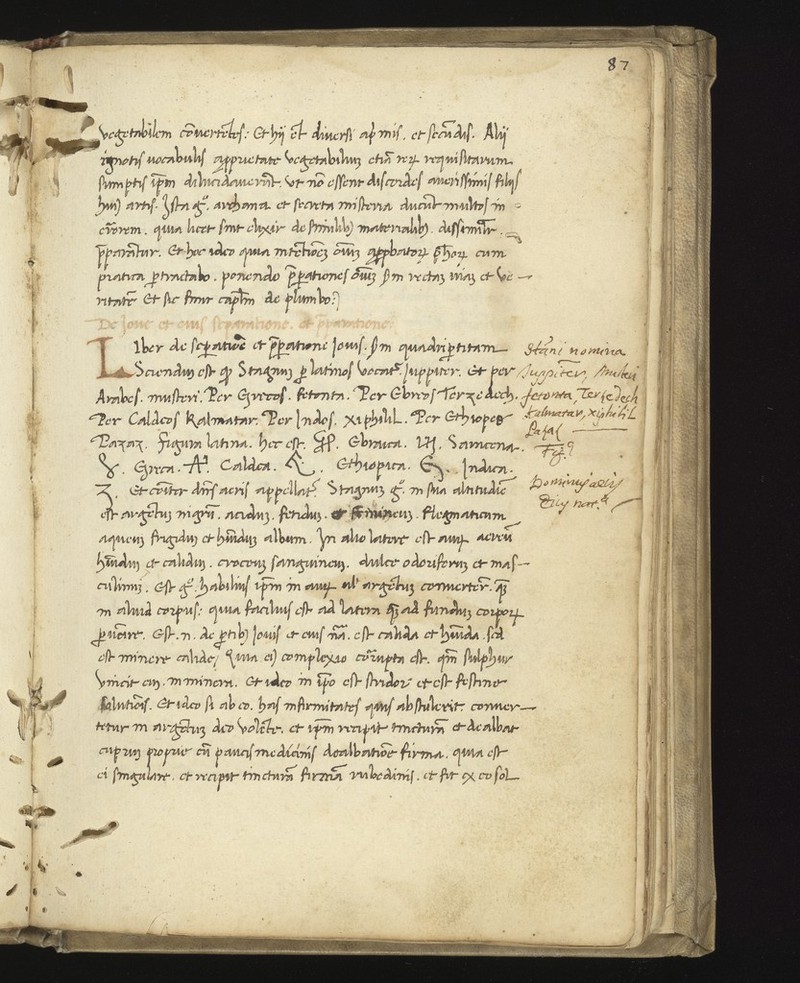 87
vegetabilem cōvertētes: Et hij ēt diversi ap mis. et secūdis. Alij
ignotis vocabulis apprietate vegetabiliuȝ etiā reꝝ requisitarum
sumptis ipm dilucidaverūt. ut nō essent discordes averissimis filijs
huiꝯ artis. Ista gͦ. archana et secreta misteria ducūt multos in
errorem. quia licet sint elixir de similibꝫ materialibꝫ. dissimilr̄.
p̄parantur. Et hoc ideo quia ītētiōeȝ oīuȝ approbatoꝝ cum
pratica ꝑtractabo. ponendo p̄parationes oīuȝ ẜm rectas vias et ve
ritatē Et sic finit caplm̄ de plumbo:
De Jove et eius separatione. et p̄paratione:
Liber de sepatiōe et p̄patione Iovis. ẜm quadripertitam
Sciendum est qꝫ Stagnum ꝑ latinos vocatʳ. Juppiter. Et per
Arabes. musteri. Per Grecos. fetonta. Per Ebreos Terzedech.
Per Caldeos Kalmatar. Per Indos. xiphilil. Per Ethiopes
Pazaz. figura latina. hec est. Ebraica. Samcena.
Greca. Caldea. Ethiopica. Indica.
Et cōiter dn̄s aeris appellatʳ. Stagnum gͦ. in sua altitudie
est argētuȝ nigrū. acidum. fetiduȝ. et femineuȝ. flegmaticum
aqueuȝ frigidum et humiduȝ album. In alio latere est auruȝ aereū
humidum et calidum. croceuȝ sanguineuȝ. dulce odoriferum et mas
culinuȝ. Est gͦ. habilius ipm in auruȝ vel argētum convertere. qȝ
in aliud corpus: quia facilius est ad latera qȝ ad fundum corpoꝝ
ꝑvenire. Est. n. de ꝑtibꝫ Iovis et eius nā. est calida et humida. sed
est minere calide, Quia eiꝯ complexio corrupta est. qm̄ sulphur
vincit eu. in minera. Et ideo in ipo est stridor et est festine
solutiōis. Et ideo si ab eo. has infirmitates quis abstulerit conver
tetur in argētum deo volēte. et ipm recipit tincturā et dealbat
cuprum proprie cū paucis medicinis dealbatiōe firma. quia est
ei singulare. et recipit tincturā firmā rubedinis. et fit ex eo sol
Stāni nomina
Juppiter, Musteri
fetonta, Terzedech
Kalmatar, xiphilil
Pazaz
Fig.ᵃ
Dominus aeris